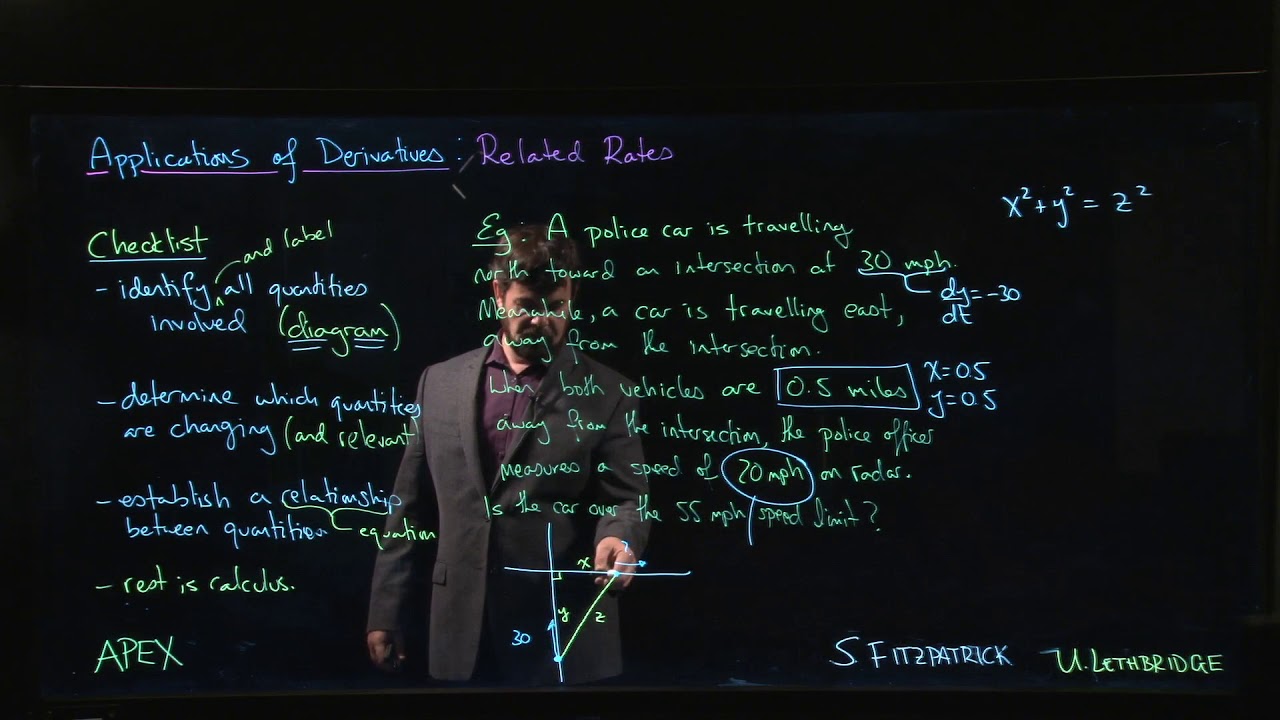 Applications of Derivatives: Related Rates
x²+y² = z²
Checklist
and label
- identify all quantities
involved (diagram)
- determine which quantities
are changing (and relevant)
- establish a relationship
between quantities
equation
- rest is calculus.
Eg: A police car is travelling
north toward an intersection at 30 mph.
dy/dt = -30
Meanwhile, a car is travelling east,
away from the intersection.
When both vehicles are 0.5 miles
x = 0.5
y = 0.5
away from the intersection, the police officer
measures a speed of 20 mph on radar.
Is the car over the 55 mph speed limit?
?
x
y
z
30
APEX
S. FITZPATRICK
U. LETHBRIDGE